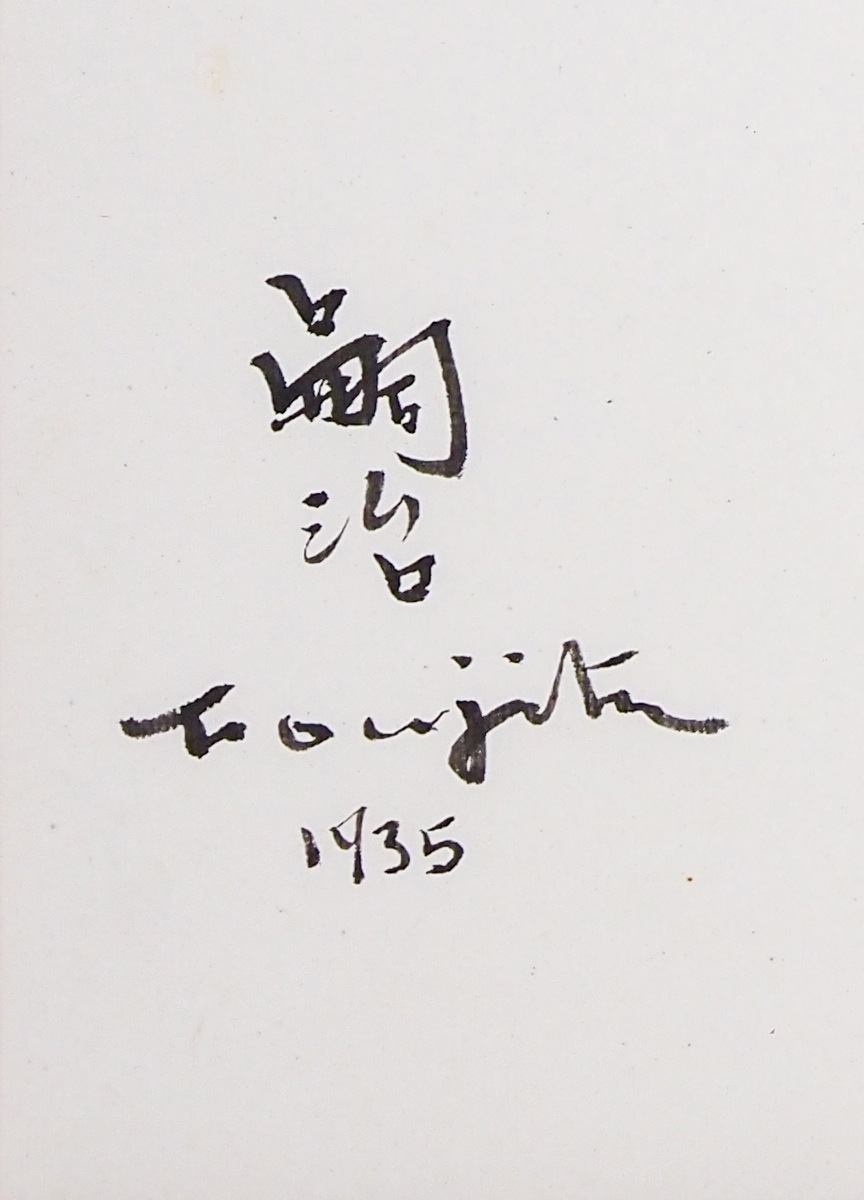 嗣治
Foujita
1935